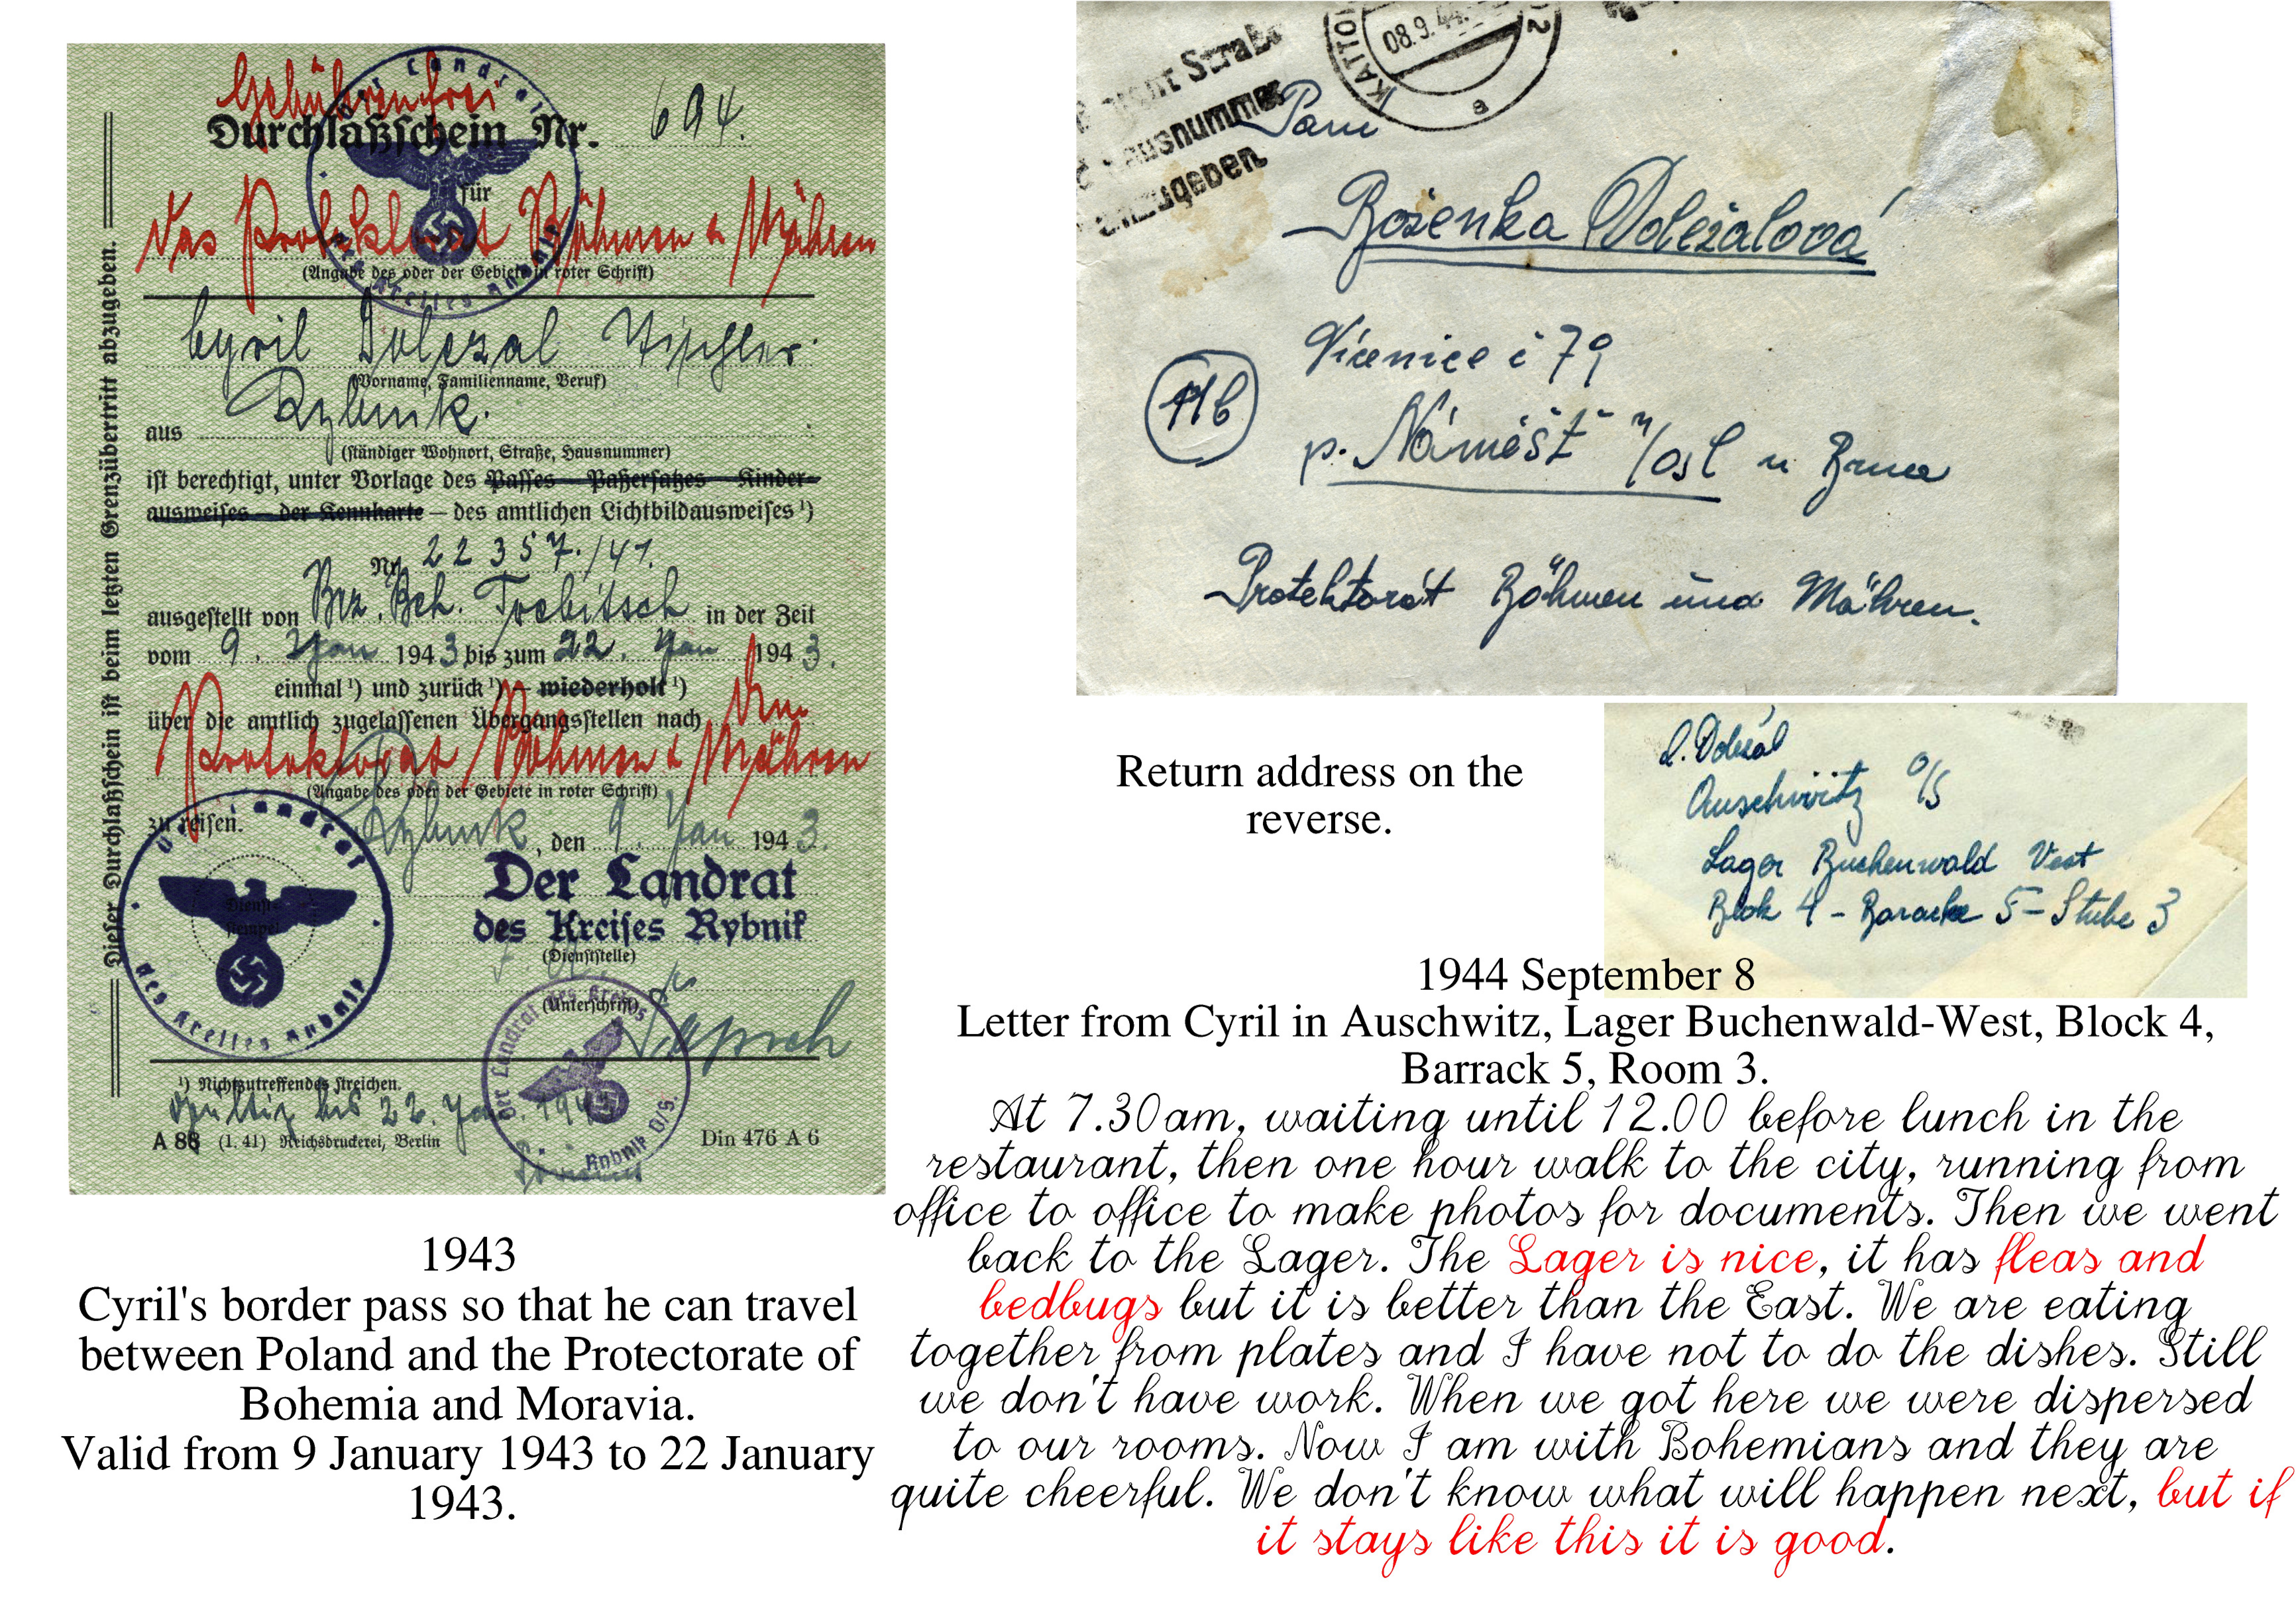 Gebührenfrei
Durchlaßschein Nr. 694.
für
Das Protektorat Böhmen & Mähren
(Angabe des oder der Gebiete in roter Schrift)
Cyril Dolezal Tischler
(Vorname, Familienname, Beruf)
aus Rybnik.
(ständiger Wohnort, Straße, Hausnummer)
ist berechtigt, unter Vorlage des Passes – Paßersatzes – Kinder-
ausweises – der Kennkarte – des amtlichen Lichtbildausweises ¹)
Nr. 22357./41.
ausgestellt von Bez. Beh. Trebitsch in der Zeit
vom 9. Jan 1943 bis zum 22. Jan 1943.
einmal ¹) und zurück ¹) – wiederholt ¹)
über die amtlich zugelassenen Übergangsstellen nach dem
Protektorat Böhmen & Mähren
(Angabe des oder der Gebiete in roter Schrift)
zu reisen.
Rybnik, den 9. Jan 1943.
Der Landrat
des Kreises Rybnik
(Dienststelle)
(Unterschrift)
Dienst-
stempel
Der Landrat
des Kreises Rybnik
Der Landrat des Kreises
Rybnik O/S.
¹) Nichtzutreffendes streichen.
Gültig bis 22. Jan. 194
A 88 (1. 41) Reichsdruckerei, Berlin Din 476 A 6
Dieser Durchlaßschein ist beim letzten Grenzübertritt abzugeben.
1943
Cyril's border pass so that he can travel
between Poland and the Protectorate of
Bohemia and Moravia.
Valid from 9 January 1943 to 22 January
1943.
Straße
Hausnummer
anzugeben
KATTO
08.9.44
2
a
Paní
Boženka Doležalová
Vícenice č 79
p. Náměšť n/Osl u Brna
11b
Protektorát Böhmen und Mähren.
Return address on the
reverse.
Doležal
Auschwitz O/S
Lager Buchenwald Vest
Blok 4 - Baracke 5 - Stube 3
1944 September 8
Letter from Cyril in Auschwitz, Lager Buchenwald-West, Block 4,
Barrack 5, Room 3.
At 7.30am, waiting until 12.00 before lunch in the
restaurant, then one hour walk to the city, running from
office to office to make photos for documents. Then we went
back to the Lager. The Lager is nice, it has fleas and
bedbugs but it is better than the East. We are eating
together from plates and I have not to do the dishes. Still
we don't have work. When we got here we were dispersed
to our rooms. Now I am with Bohemians and they are
quite cheerful. We don't know what will happen next, but if
it stays like this it is good.